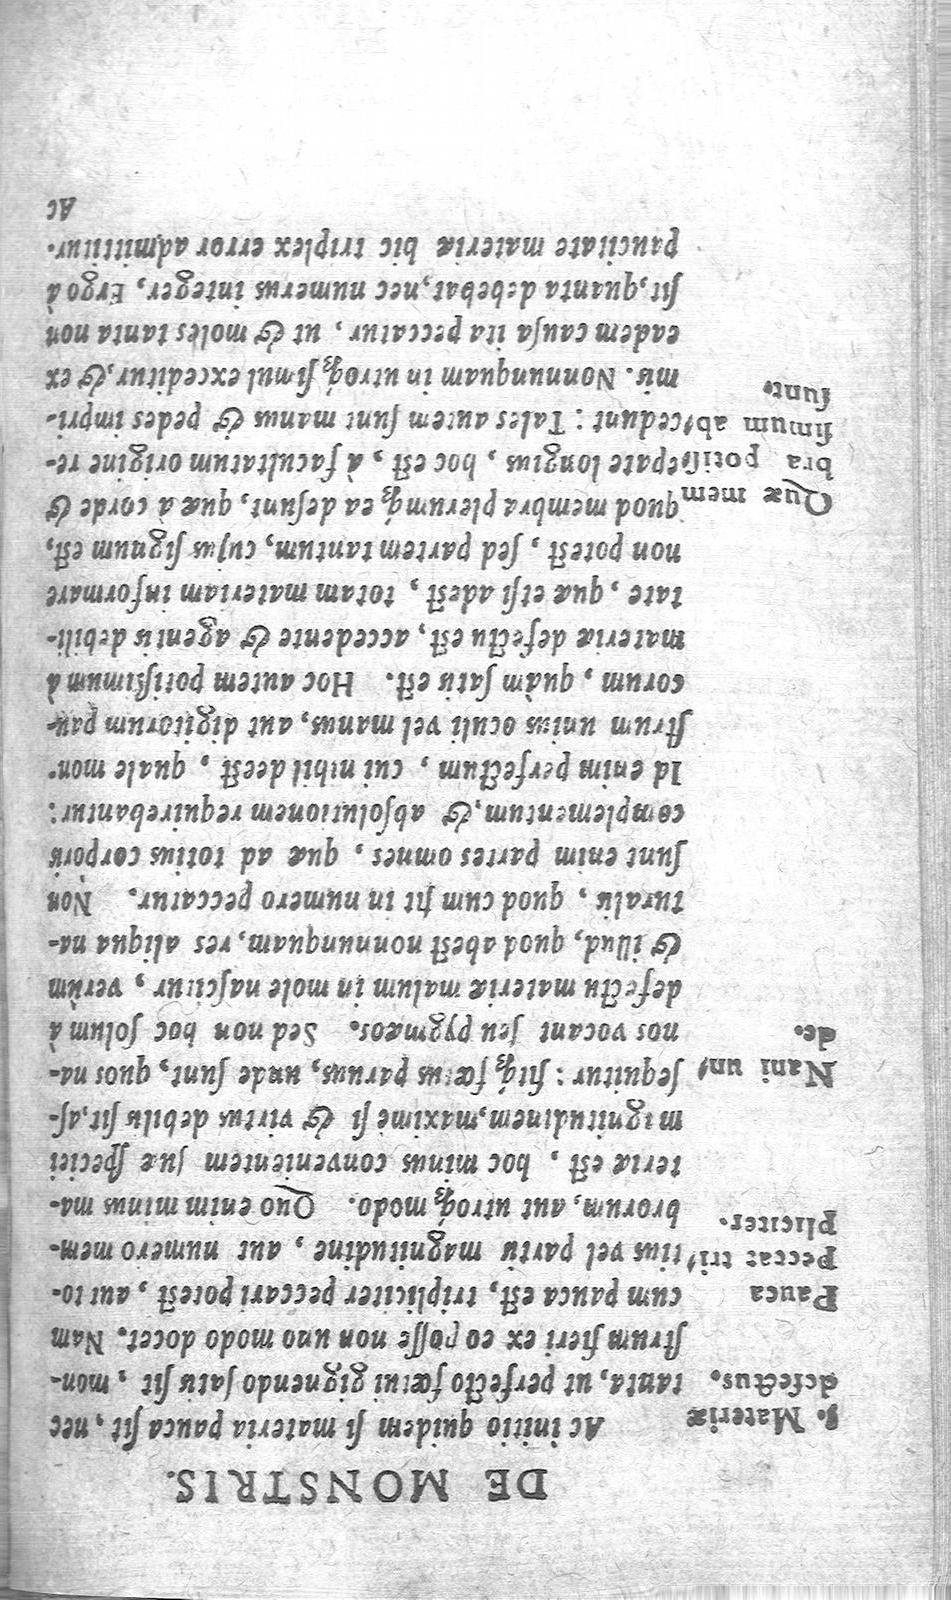 DE MONSTRIS.
Ac initio quidem si materia pauca sit, nec
tanta, ut perfecto fœtui gignendo satis sit, mon-
strum fieri ex eo posse non uno modo docet. Nam
cum pauca est, tripliciter peccari potest, aut to-
tius vel partis magnitudine, aut numero mem-
brorum, aut utroq; modo. Quo enim minus ma-
teriæ est, hoc minus convenientem suæ speciei
magnitudinem, maximè si & virtus debilis sit, as-
sequitur: fitq; fœtus parvus, unde sunt, quos na-
nos vocant seu pygmæos. Sed non hoc solum à
defectu materiæ malum in mole nascitur, verùm
& illud, quod abest nonnunquam, res aliqua na-
turalis, quod cum fit in numero peccatur. Non
sunt enim partes omnes, quæ ad totius corporis
complementum, & absolutionem requirebantur:
Id enim perfectum, cui nihil deest, quale mon-
strum unius oculi vel manus, aut digitorum pau-
corum, quàm satis est. Hoc autem potißimum à
materiæ defectu est, accedente & agentis debili-
tate, quæ etsi adest, totam materiam informare
non potest, sed partem tantum, cujus signum est,
quod membra plerumq; ea desunt, quæ à corde &
epate longius, hoc est, à facultatum origine re-
cedunt: Tales autem sunt manus & pedes impri-
mis. Nonnunquam in utroq; simul exceditur, & ex
eadem causa ita peccatur, ut & moles tanta non
sit, quanta debebat, nec numerus integer, Ergo à
paucitate materiæ hic triplex error admittitur.
Ac
Materiæ
defectus.
Pauca
Peccat tri-
pliciter.
Nani un-
de.
Quæ mem
bra potis-
simum ab-
sunt.